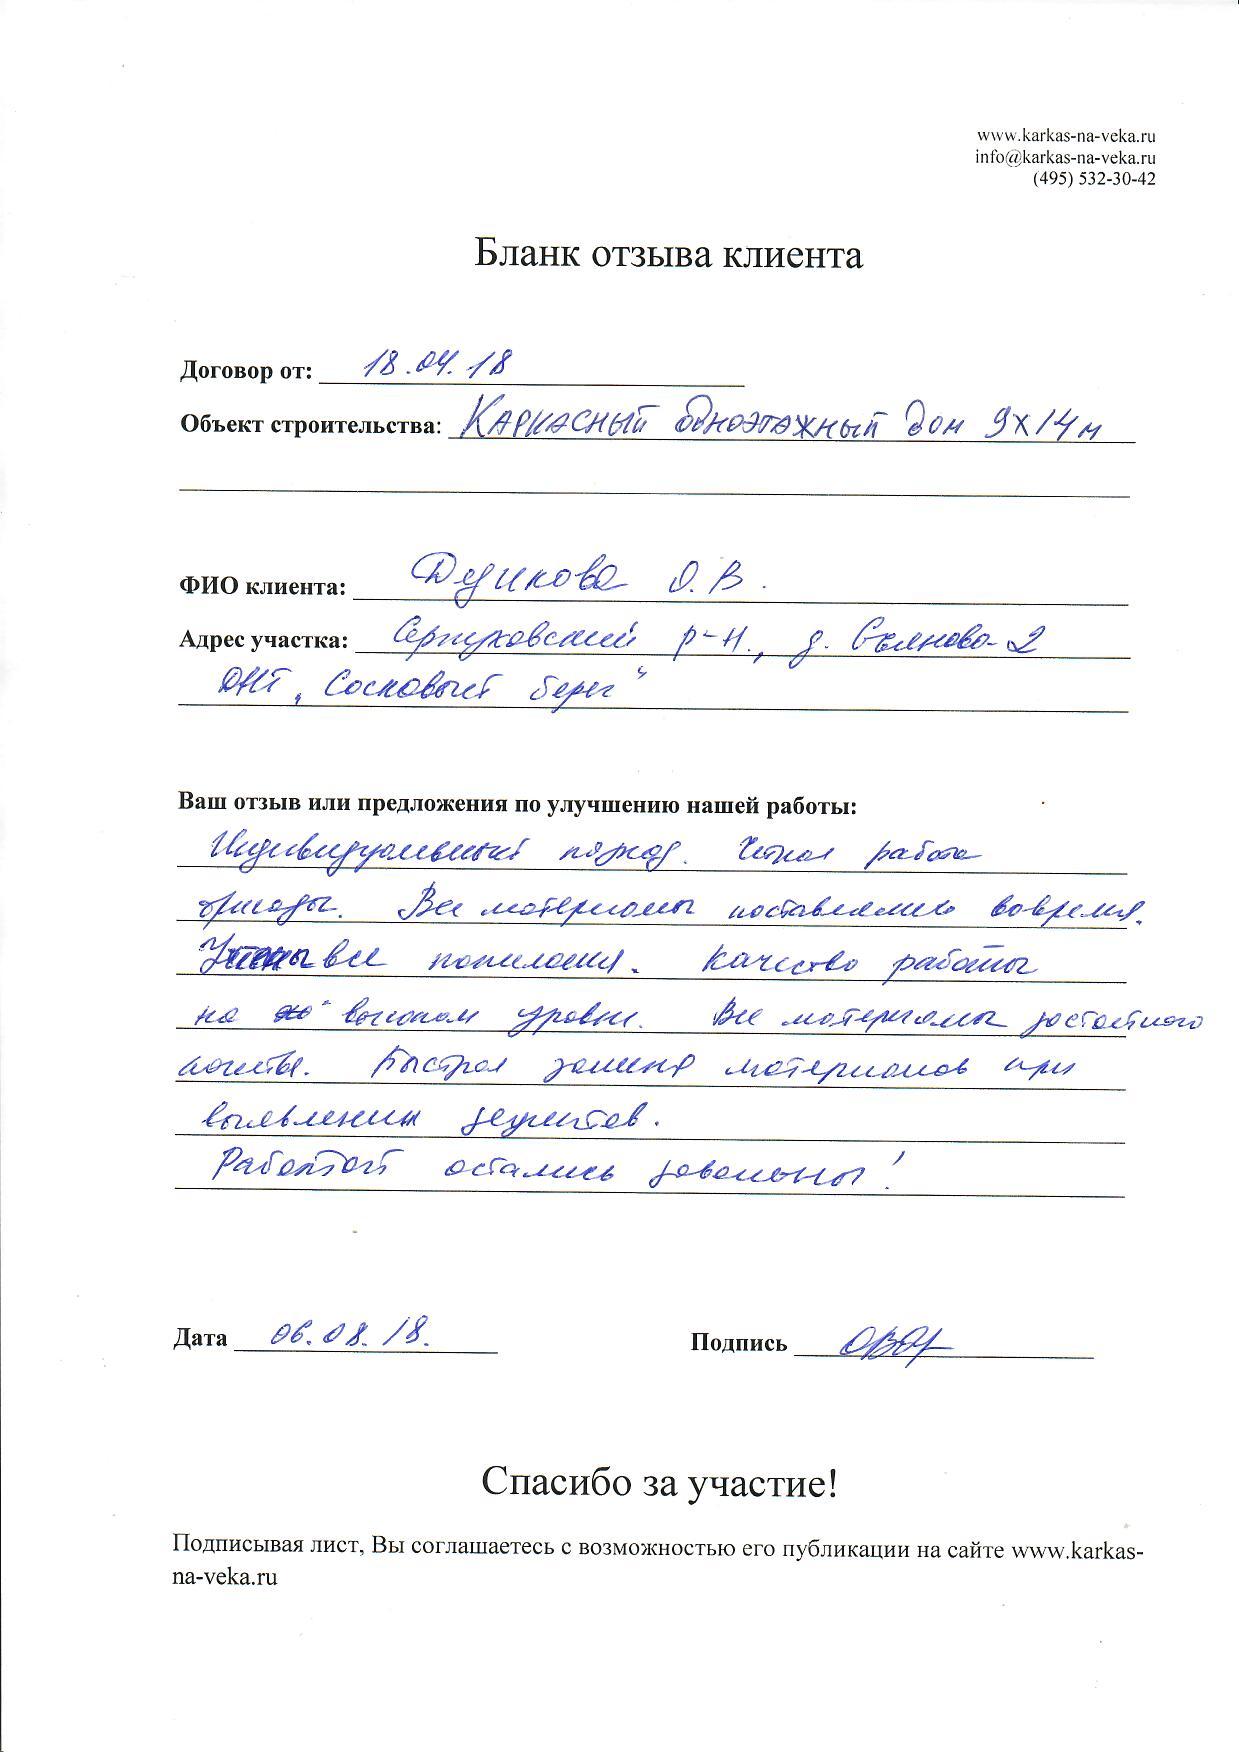 www.karkas-na-veka.ru
info@karkas-na-veka.ru
(495) 532-30-42
Бланк отзыва клиента
Договор от: 18.04.18
Объект строительства: Каркасный одноэтажный дом 9х14м
ФИО клиента: О.В.
Адрес участка: Серпуховский р-н., д. Съяново-2
ДНТ „Сосновый берег"
Ваш отзыв или предложения по улучшению нашей работы:
Индивидуальный подход. Четкая работа
бригады. Все материалы поставлялись вовремя.
Учтены все пожелания. Качество работы
на высоком уровне. Все материалы достойного
качества. Быстрая замена материалов при
выявлении дефектов.
Работой остались довольны!
Дата 06.08.18. Подпись
Спасибо за участие!
Подписывая лист, Вы соглашаетесь с возможностью его публикации на сайте www.karkas-
na-veka.ru